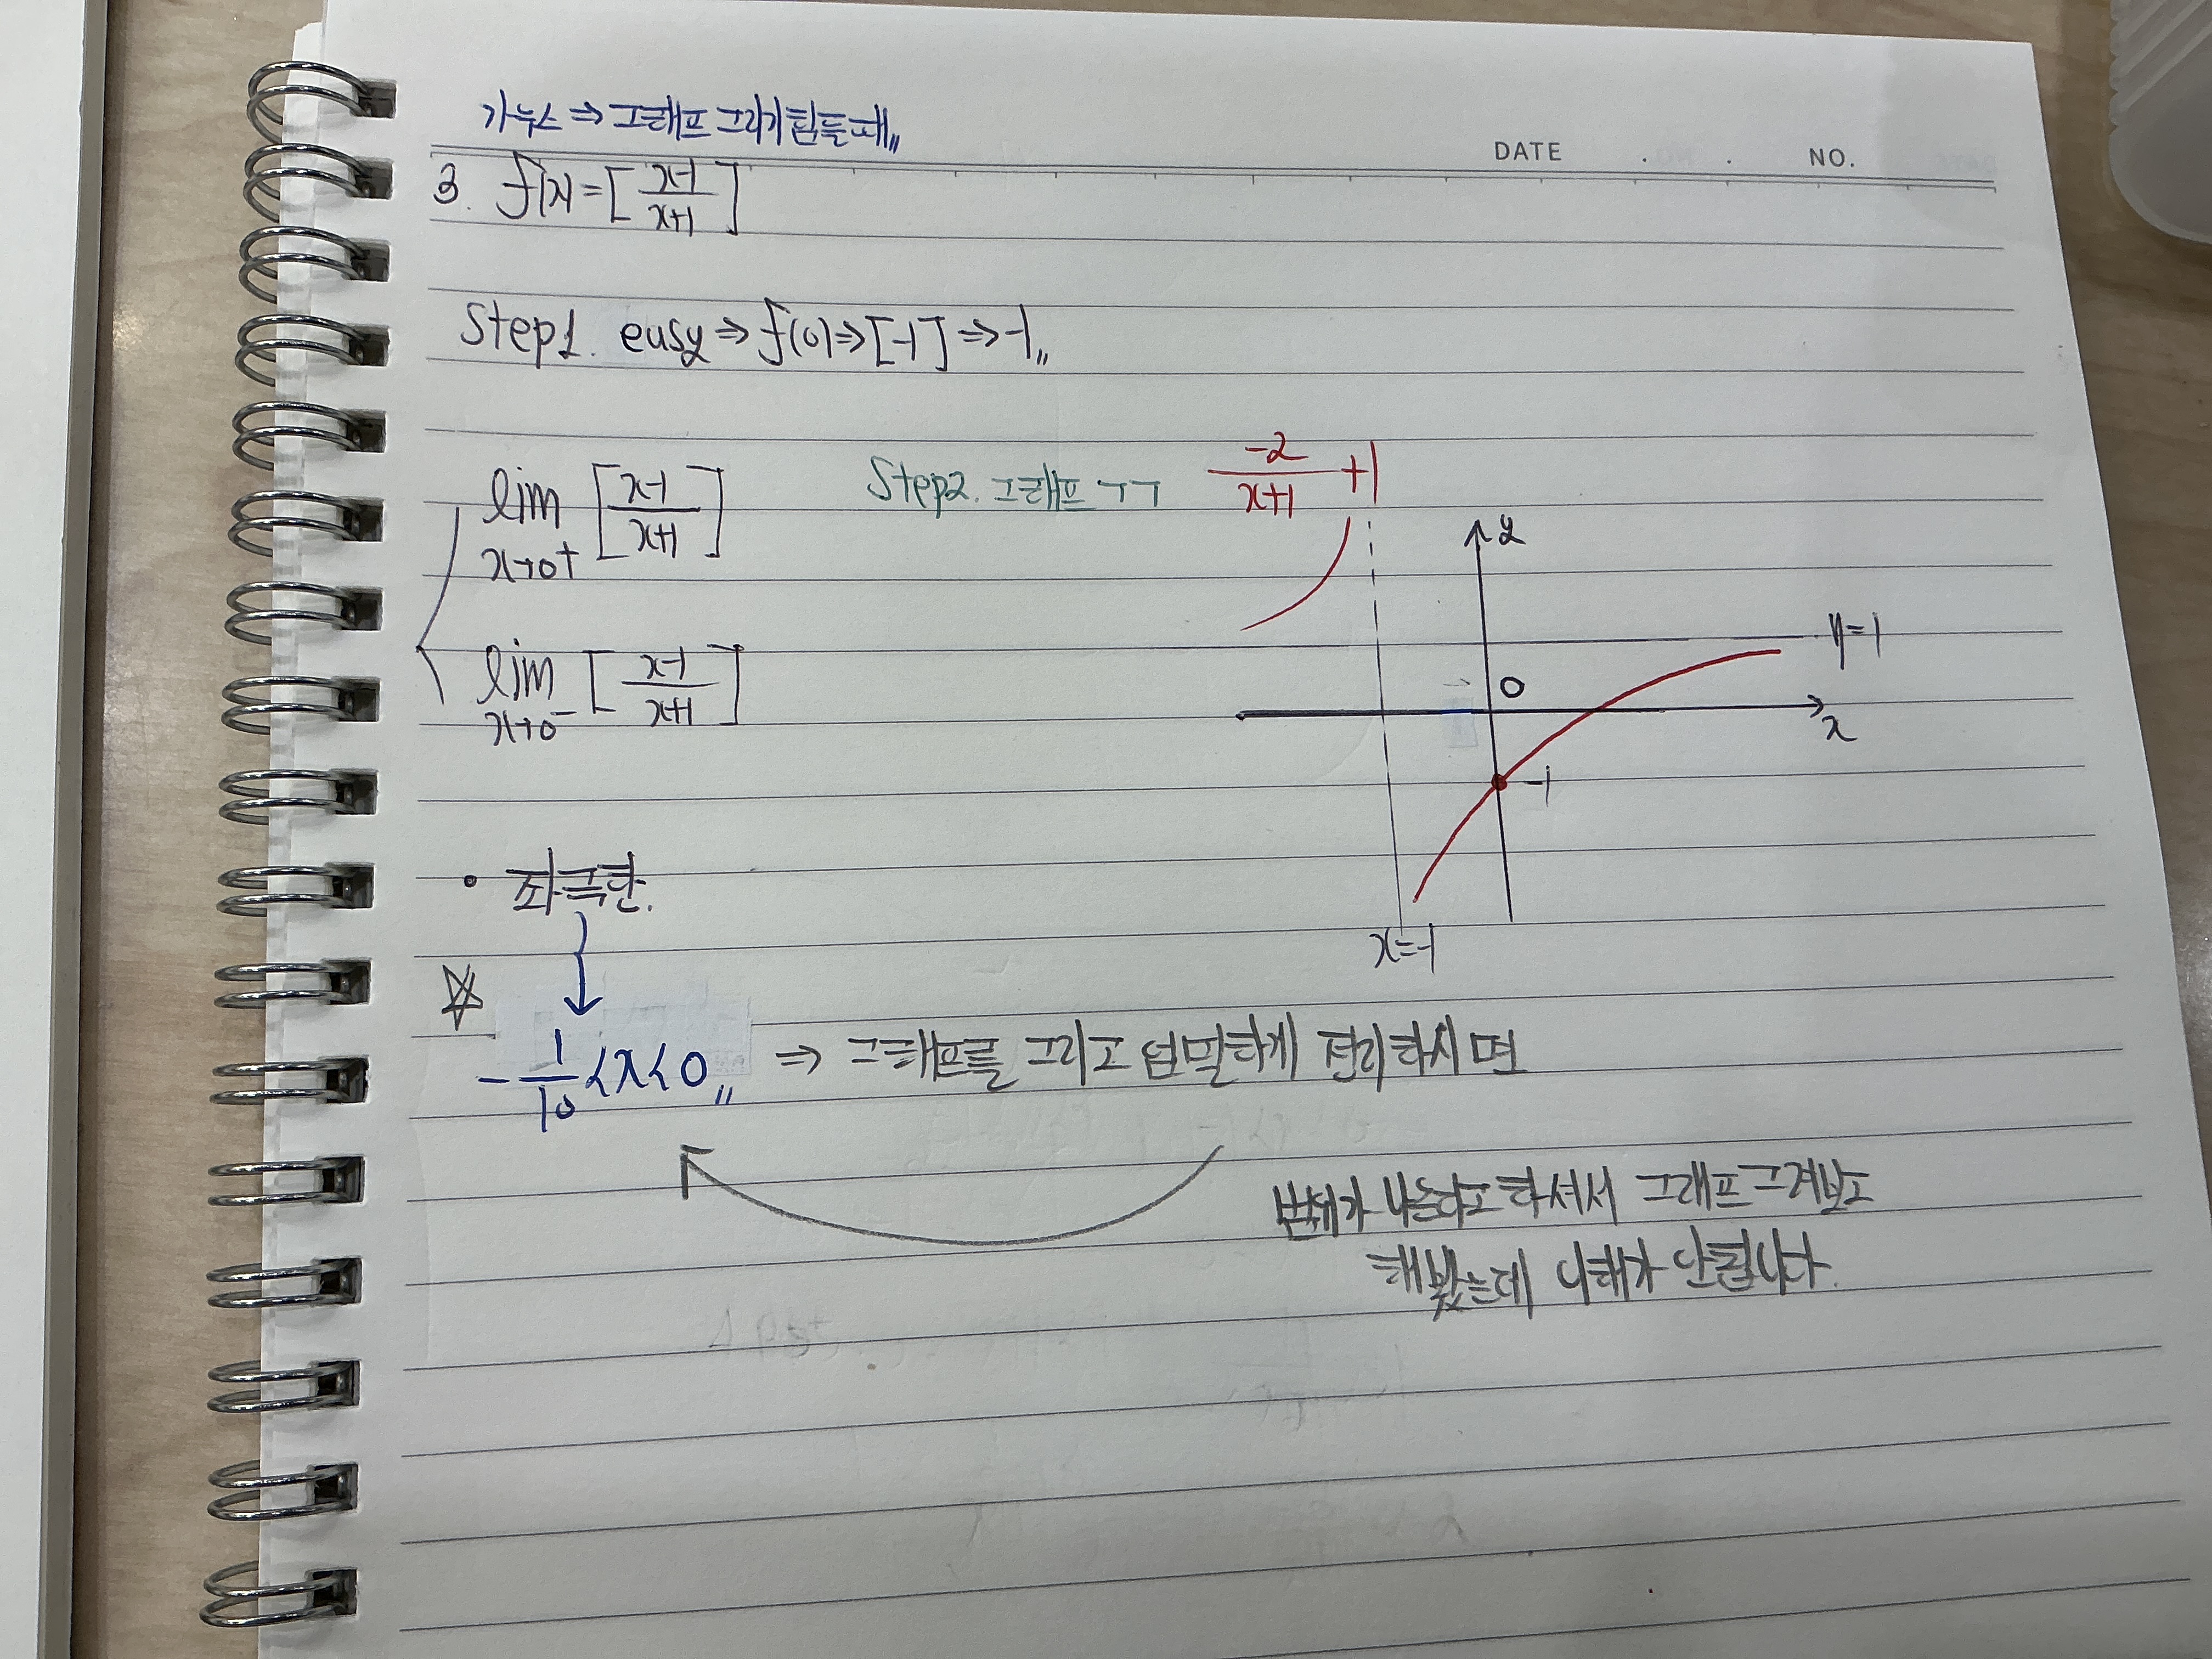 가우스 ⇒ 그래프 그리기 힘들때,,
DATE . . NO.
3. f(x) = [x-1/x+1]
Step1. easy ⇒ f(0) ⇒ [-1] ⇒ -1,,
lim x→0+ [x-1/x+1]
Step2. 그래프 ㄱㄱ -2/x+1 +1
y
lim x→0- [x-1/x+1]
y=1
0
x
-1
• 좌극한.
x=-1
☆ -1/10 < x < 0,, ⇒ 그래프를 그리고 엄밀하게 정리하시면
범위가 나온다고 하셔서 그래프 그려보고
해봤는데 이해가 안됩니다.